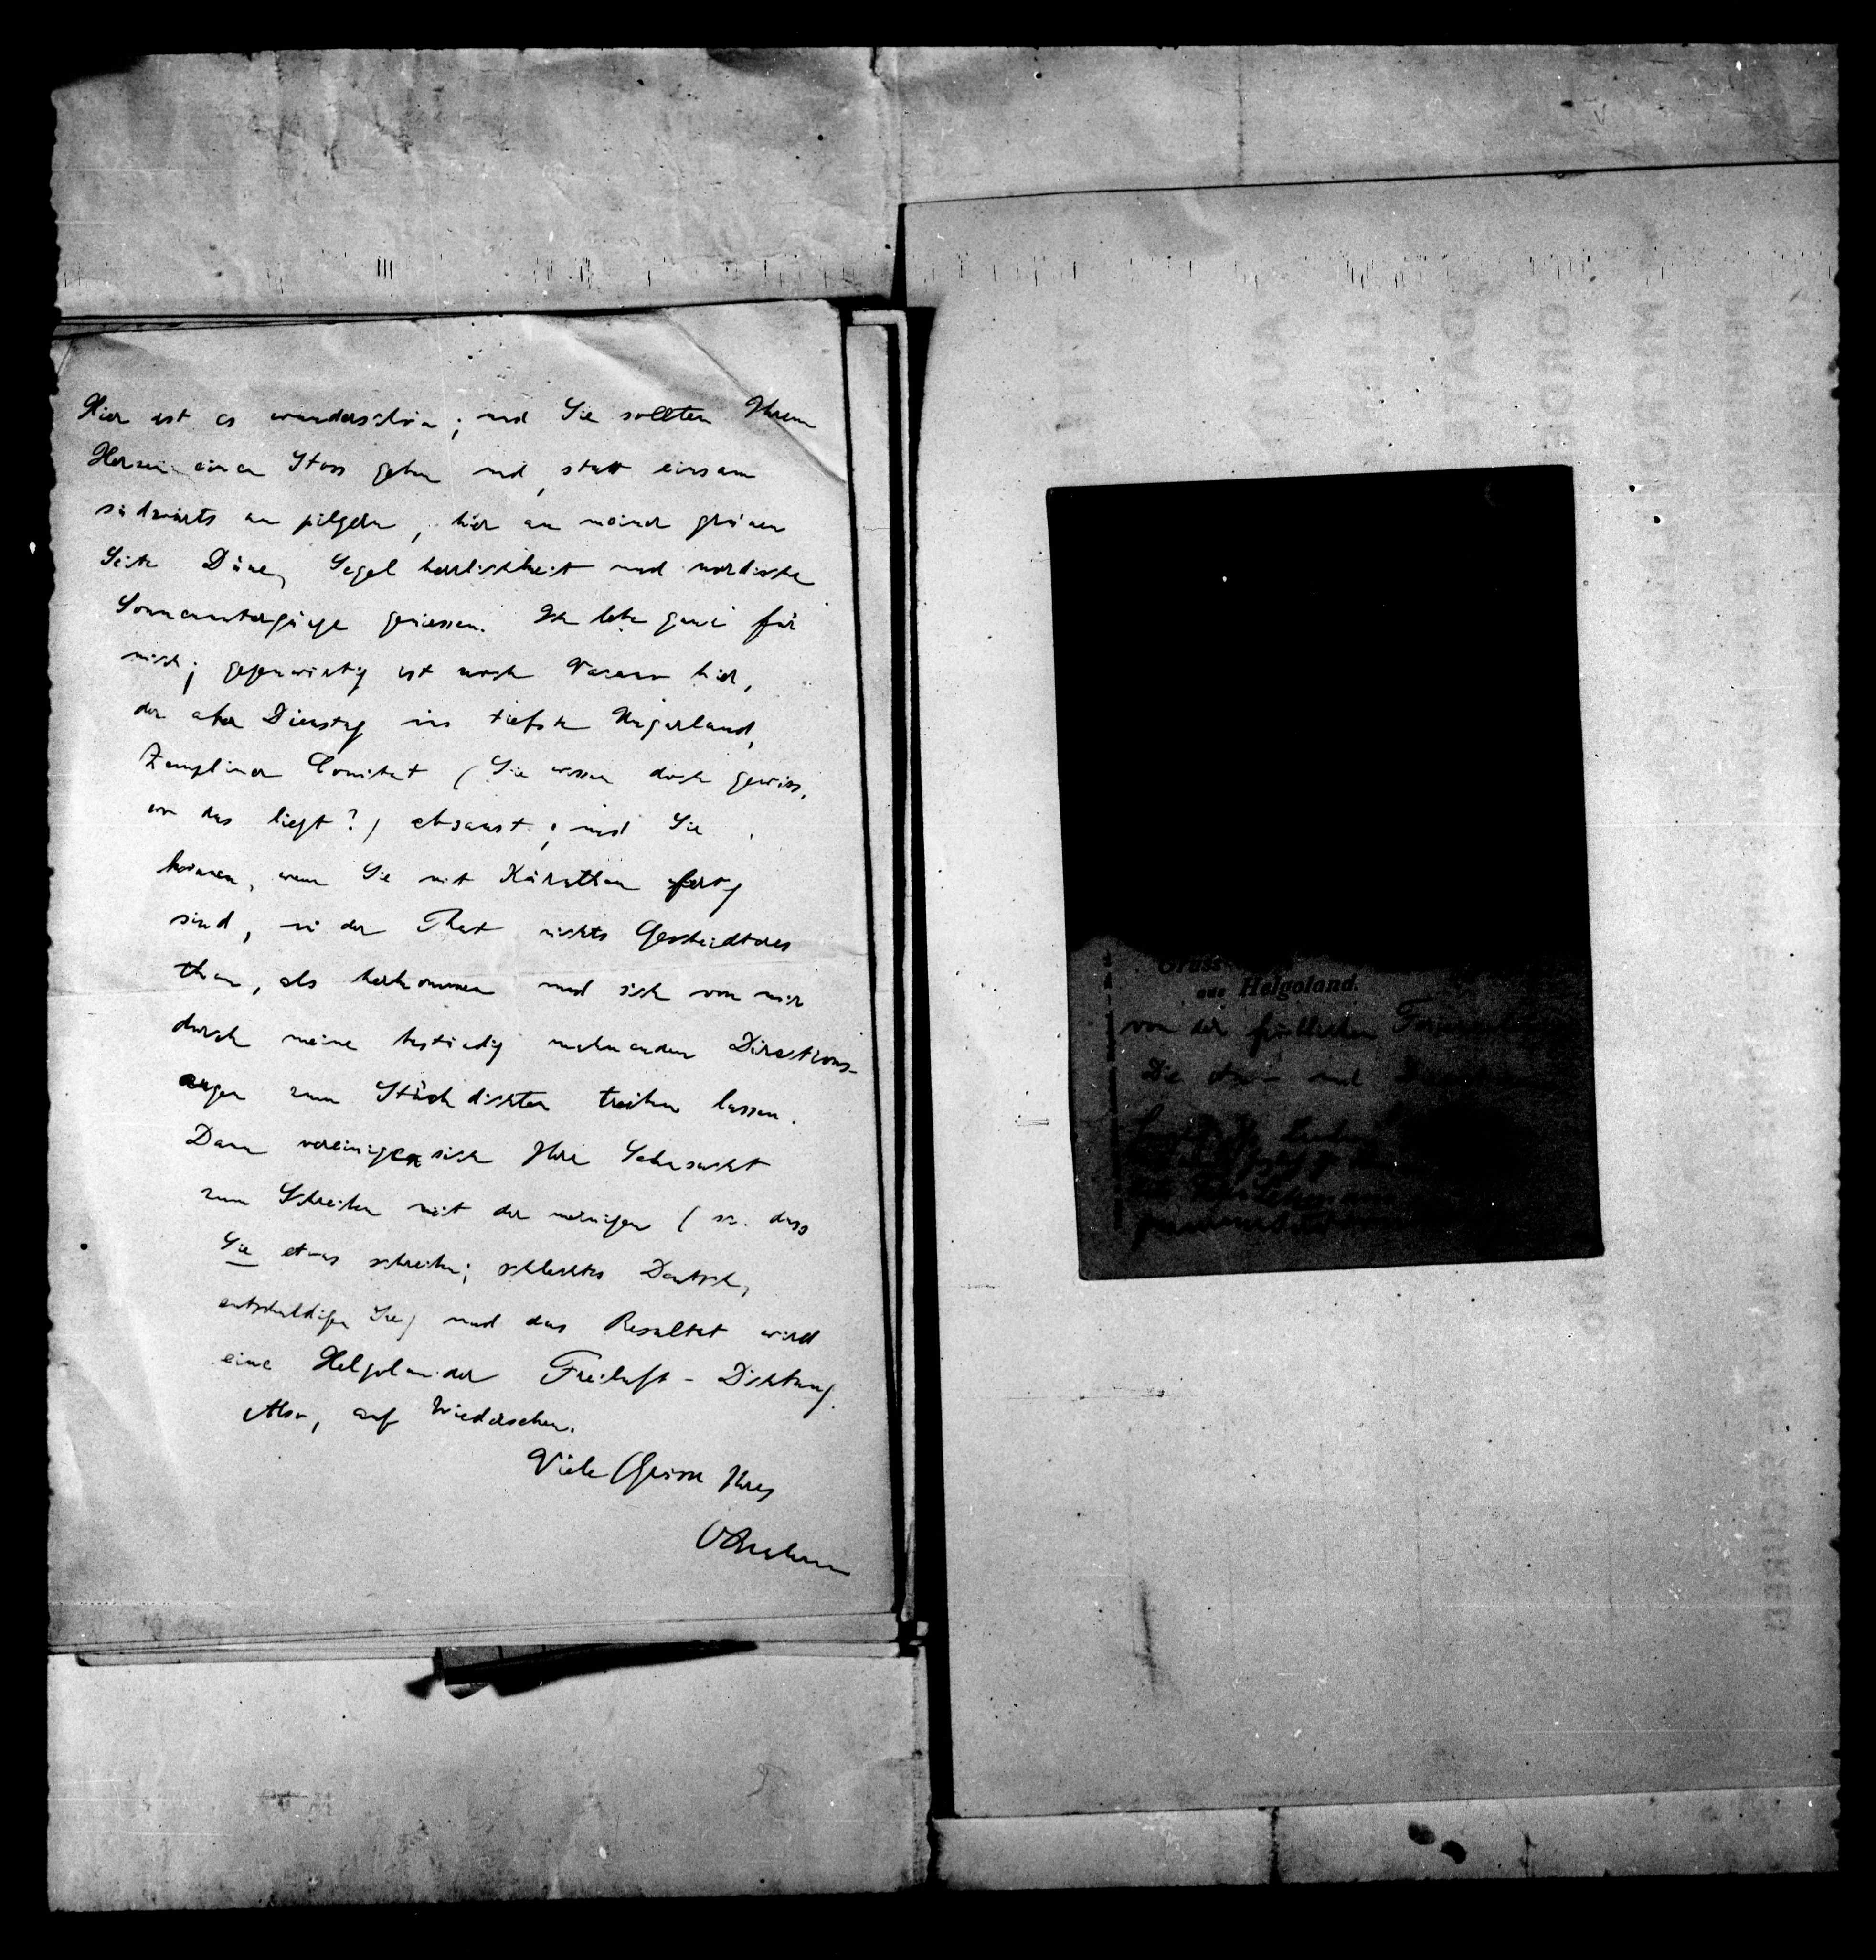 Hier ist es wunderschön; und Sie sollten Ihrem
Herzen einen Stoss geben und, statt einsam
südwärts zu pilgern, hier an meiner grünen
Seite Düne, Segelherrlichkeit und nordische
Sonnenuntergänge geniessen. Ich lebe ganz für
mich; gegenwärtig ist noch hier,
der aber Dienstag ins tiefste Ungarland,
Zempliner Comitat (Sie wissen doch gewiss,
wo das liegt?) absaust; und Sie
können, wenn Sie mit Kärnthen fertig
sind, in der That nichts Gescheidteres
thun, als herkommen und sich von mir
durch meine beständig mahnenden Directions-
augen zum Stückdichten treiben lassen.
Dann vereinigen sich Ihre Sehnsucht
zum Schreiben mit der meinigen (sc. dass
Sie etwas schreiben; schlechtes Deutsch,
entschuldigen Sie) und das Resultat wird
eine Helgoländer Freiluft-Dichtung.
Also, auf Wiedersehen.
Viele Grüsse Ihres
OBrahm
Gruss
aus Helgoland.
von der
Die und